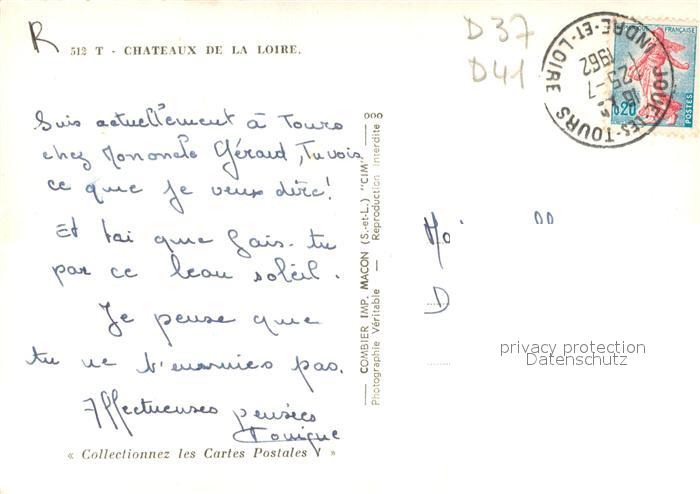 R
512 T - CHATEAUX DE LA LOIRE.
D37
D41
JOUÉ-LES-TOURS
INDRE-ET-LOIRE
25-7
1962
RÉPUBLIQUE FRANÇAISE
0,20
POSTES
Suis actuellement à Tours
chez Gérard, Tu vois
ce que je veux dire!
Et toi que fais-tu
par ce beau soleil.
Je pense que
tu ne t'ennuies pas.
Affectueuses pensées
« Collectionnez les Cartes Postales »
COMBIER IMP. MACON (S.-et-L.) "CIM"
Photographie Véritable — Reproduction Interdite
privacy protection
Datenschutz